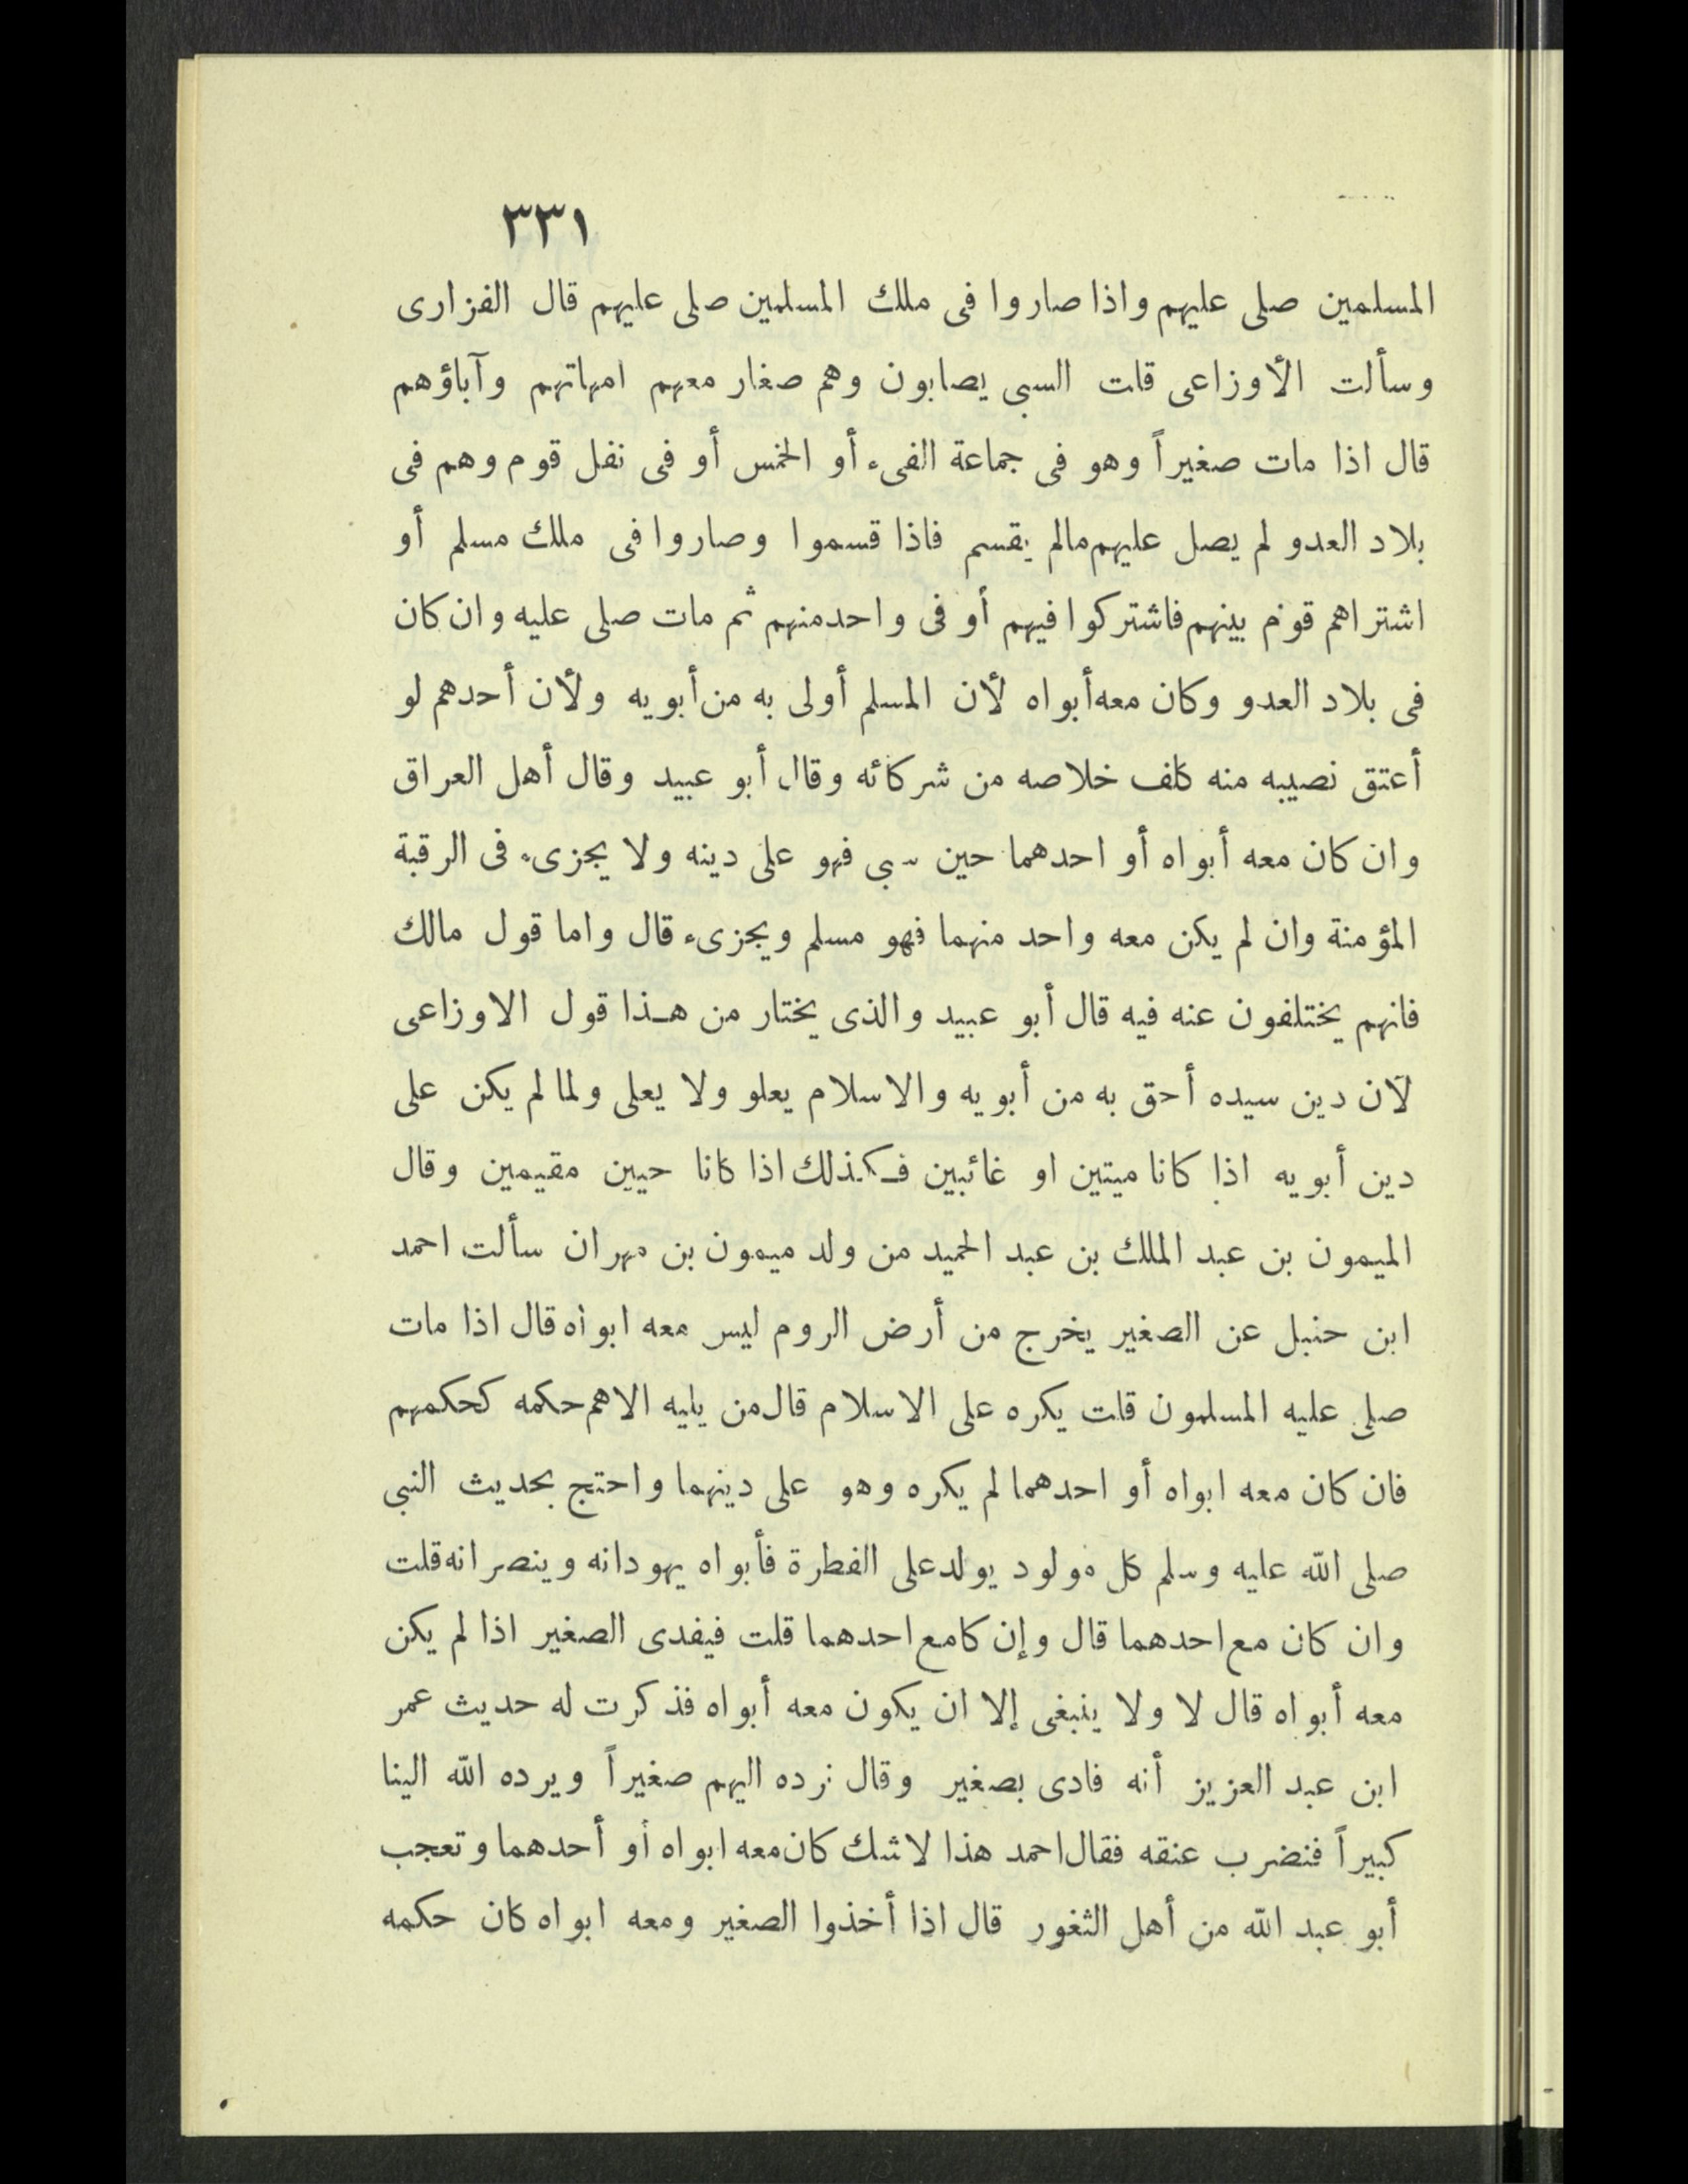 ٣٣١
المسلمين صلى عليهم واذا صاروا فى ملك المسلمين صلى عليهم قال الفزارى
وسألت الأوزاعى قلت السبى يصابون وهم صغار معهم امهاتهم وآباؤهم
قال اذا مات صغيراً وهو فى جماعة الفىء أو الخمس أو فى نفل قوم وهم فى
بلاد العدو لم يصل عليهم مالم يقسم فاذا قسموا وصاروا فى ملك مسلم أو
اشتراهم قوم بينهم فاشتركوا فيهم أو فى واحد منهم ثم مات صلى عليه وان كان
فى بلاد العدو وكان معه أبواه لأن المسلم أولى به من أبويه ولأن أحدهم لو
أعتق نصيبه منه كلف خلاصه من شركائه وقال أبو عبيد وقال أهل العراق
وان كان معه أبواه أو احدهما حين سبى فهو على دينه ولا يجزىء فى الرقبة
المؤمنة وان لم يكن معه واحد منهما فهو مسلم ويجزىء قال واما قول مالك
فانهم يختلفون عنه فيه قال أبو عبيد والذى يختار من هـذا قول الاوزاعى
لأن دين سيده أحق به من أبويه والاسلام يعلو ولا يعلى ولما لم يكن على
دين أبويه اذا كانا ميتين او غائبين فـكـذلك اذا كانا حيين مقيمين وقال
الميمون بن عبد الملك بن عبد الحميد من ولد ميمون بن مهران سألت احمد
ابن حنبل عن الصغير يخرج من أرض الروم ليس معه ابواه قال اذا مات
صلى عليه المسلمون قلت يكره على الاسلام قال من يليه الاهم حكمه كحكمهم
فان كان معه ابواه أو احدهما لم يكره وهو على دينهما واحتج بحديث النبى
صلى الله عليه وسلم كل مولود يولد على الفطرة فأبواه يهودانه وينصرانه قلت
وان كان مع احدهما قال وإن كا مع احدهما قلت فيفدى الصغير اذا لم يكن
معه أبواه قال لا ولا ينبغى إلا ان يكون معه أبواه فذكرت له حديث عمر
ابن عبد العزيز أنه فادى بصغير وقال نرده اليهم صغيراً ويرده الله الينا
كبيراً فنضرب عنقه فقال احمد هذا لا شك كان معه ابواه أو أحدهما وتعجب
أبو عبد الله من أهل الثغور قال اذا أخذوا الصغير ومعه ابواه كان حكمه